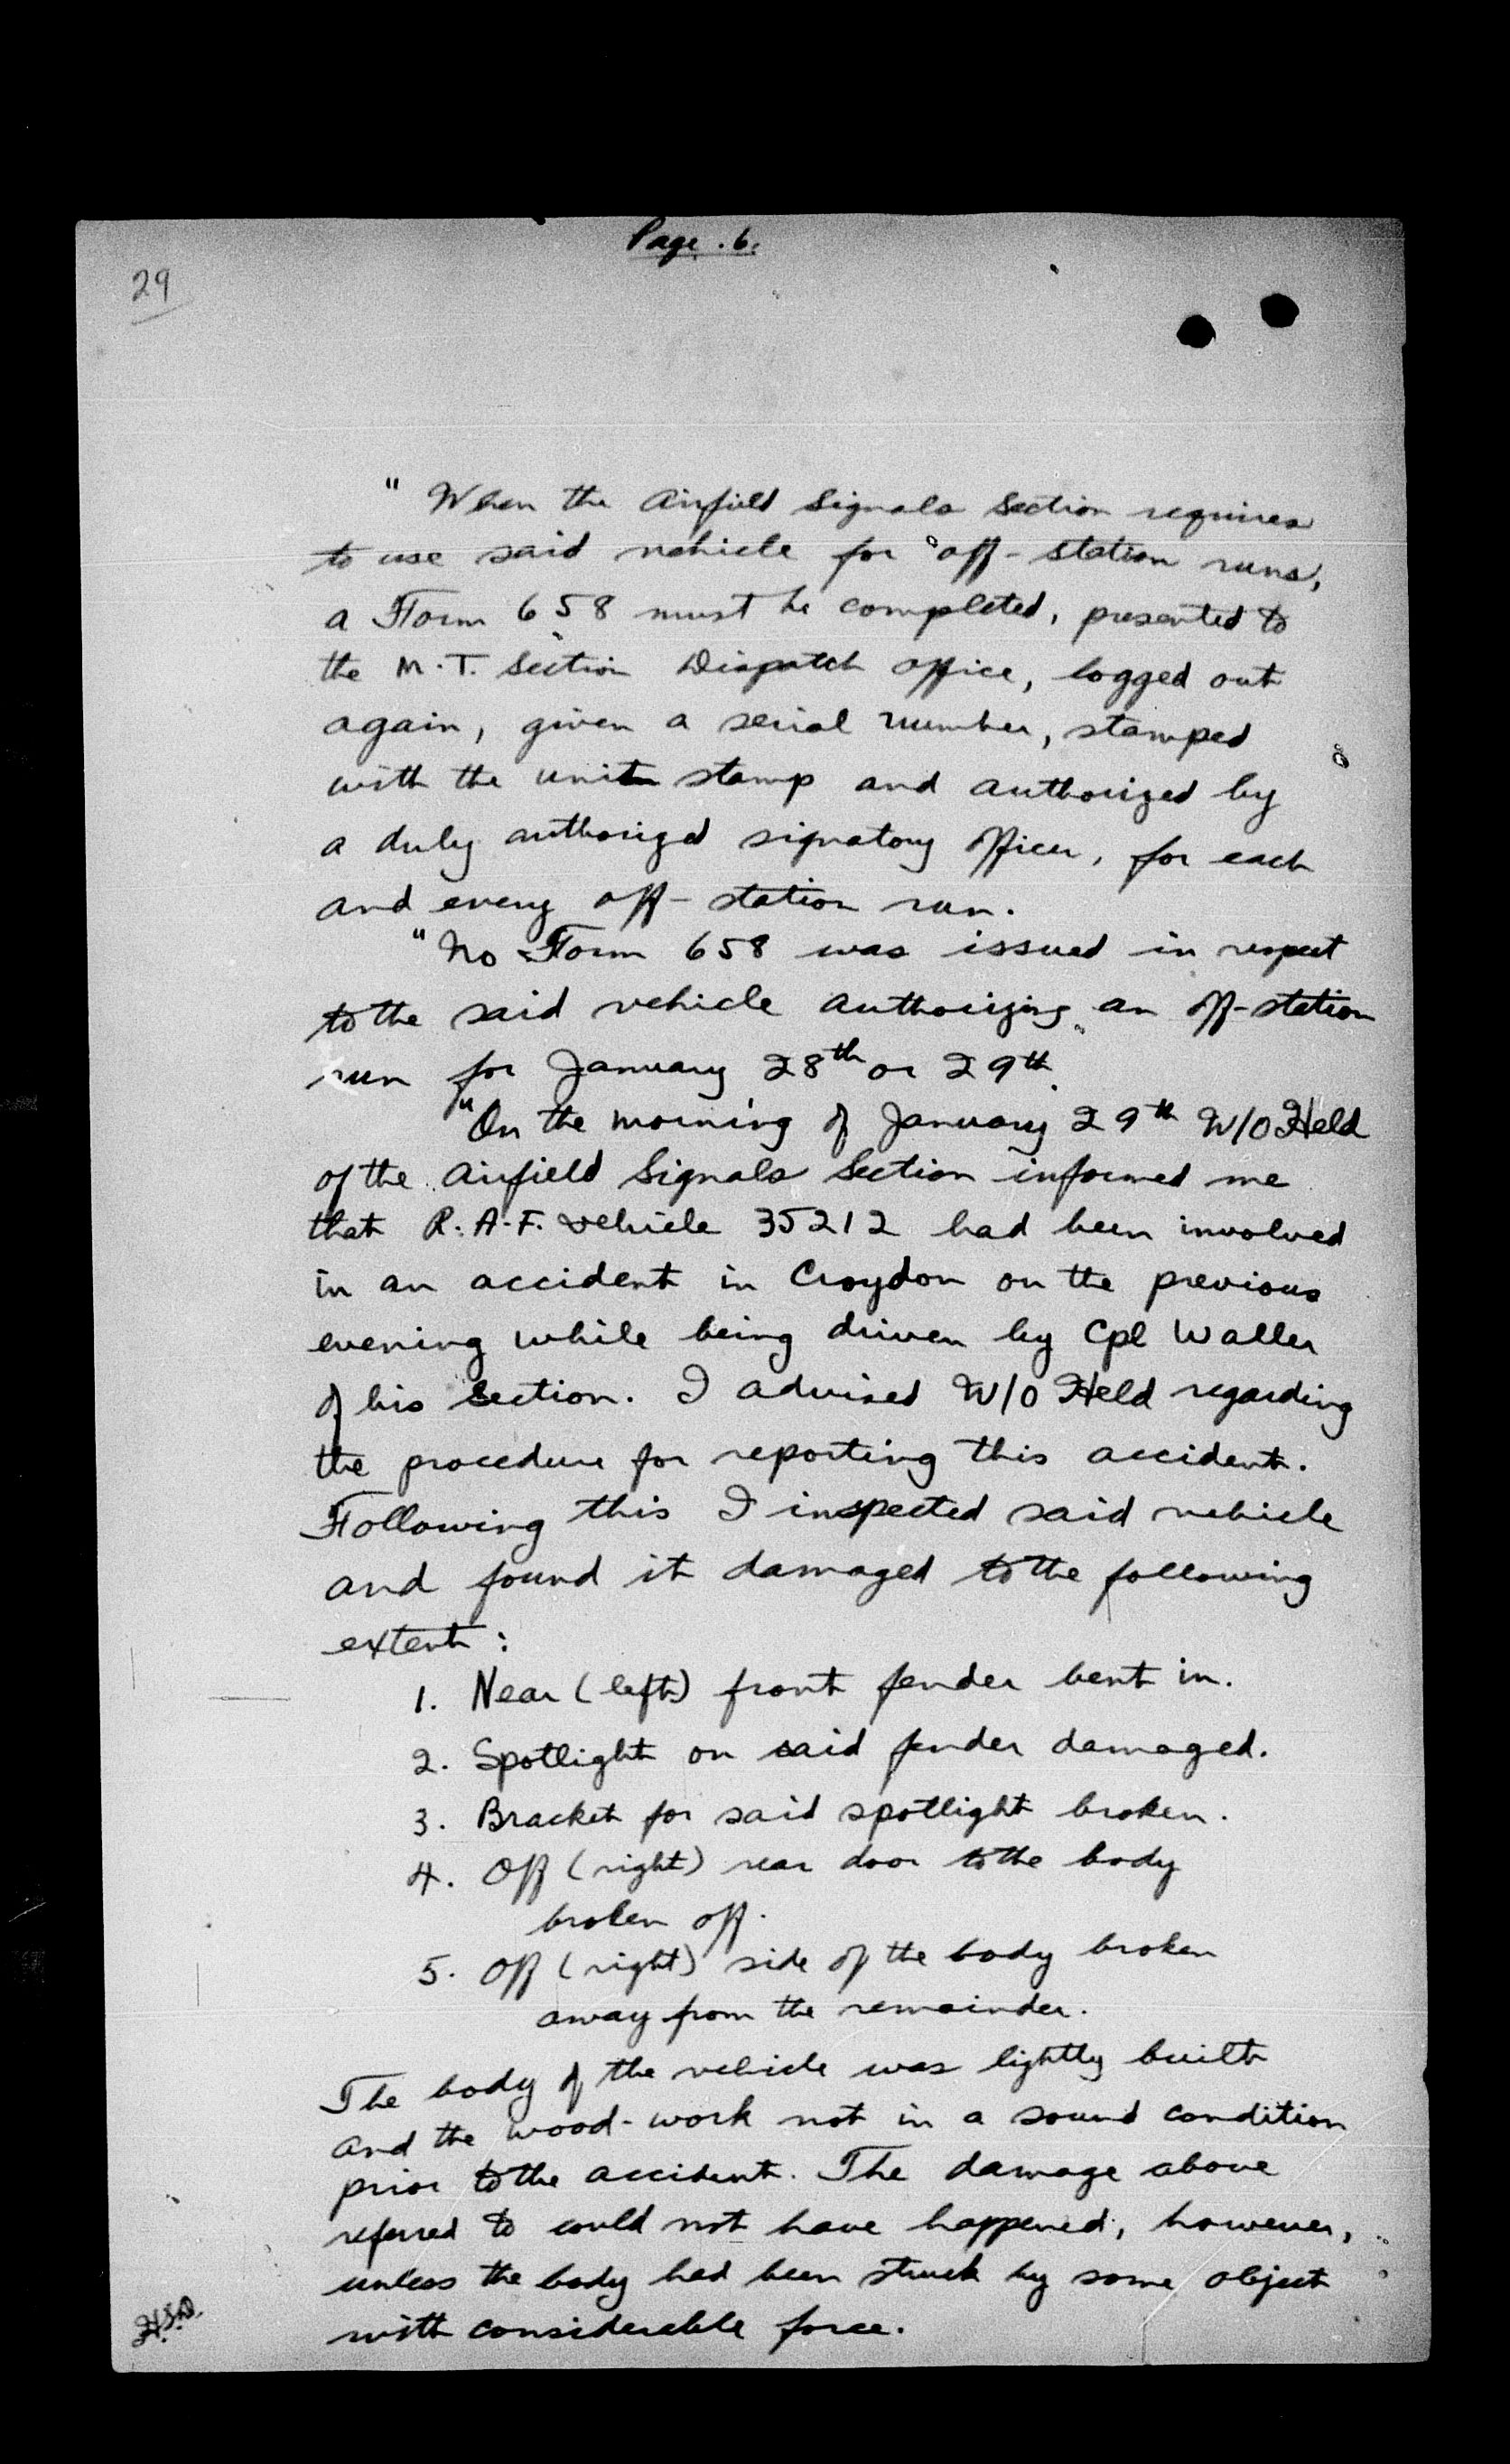 Page .6.
29
" When the Airfield Signals Section requires
to use said vehicle for off-station runs,
a Form 658 must be completed, presented to
the M.T. Section Dispatch office, logged out
again, given a serial number, stamped
with the unit stamp and authorized by
a duly authorized signatory officer, for each
and every off-station run.
"No Form 658 was issued in respect
to the said vehicle authorizing an off-station
run for January 28th or 29th.
"On the morning of January 29th W/O Held
of the Airfield Signals Section informed me
that R.A.F. vehicle 35212 had been involved
in an accident in Croydon on the previous
evening while being driven by Cpl Waller
of his section. I advised W/O Held regarding
the procedure for reporting this accident.
Following this I inspected said vehicle
and found it damaged to the following
extent :
1. Near (left) front fender bent in.
2. Spotlight on said fender damaged.
3. Bracket for said spotlight broken.
4. Off (right) rear door to the body
broken off.
5. Off (right) side of the body broken
away from the remainder.
The body of the vehicle was lightly built
and the wood-work not in a sound condition
prior to the accident. The damage above
referred to could not have happened, however,
unless the body had been struck by some object
with considerable force.
H.S.D.